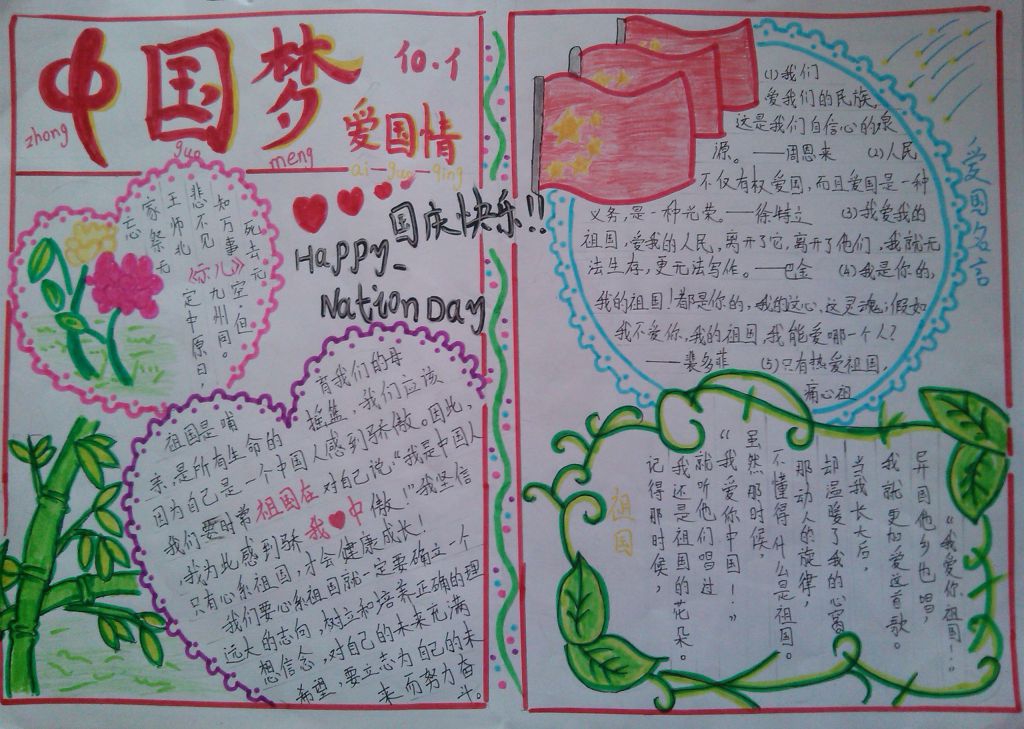 中国梦
zhong
guo
meng
10.1
爱国情
ai-guo-qing
国庆快乐!!
Happy
Nation Day
《示儿》
死去元
知万事空,但
悲不见九州同。
王师北定中原日,
家祭无
忘
祖国是哺
育我们的母
亲,是所有生命的
摇篮,我们应该
因为自己是一个中国人感到骄傲。因此,
我们要时常
对自己说“我是中国人
祖国在
我❤中
,我为此感到骄傲!”我坚信
只有心系祖国,才会健康成长!
我们要心系祖国就一定要确立一个
远大的志向,树立和培养正确的理
想信念,对自己的未来充满
希望,要立志为自己的未
来而努力奋
斗。
爱国名言
(1)我们
爱我们的民族,
这是我们自信心的泉
源。——周恩来 (2)人民
不仅有权爱国,而且爱国是一种
义务,是一种光荣。——徐特立 (3)我爱我的
祖国,爱我的人民,离开了它,离开了他们,我就无
法生存,更无法写作。——巴金 (4)我是你的,
我的祖国!都是你的,我的这心,这灵魂;假如
我不爱你,我的祖国,我能爱哪一个人?
——裴多菲 (5)只有热爱祖国,
痛心祖
“我爱你祖国!”
异国他乡也唱,
我就更加爱这首歌。
当我长大后,
却温暖了我的心窝
那动人的旋律,
不懂得什么是祖国。
虽然那时候,
“我爱你中国!”
就听他们唱过
我还是祖国的花朵。
记得那时候,
祖国